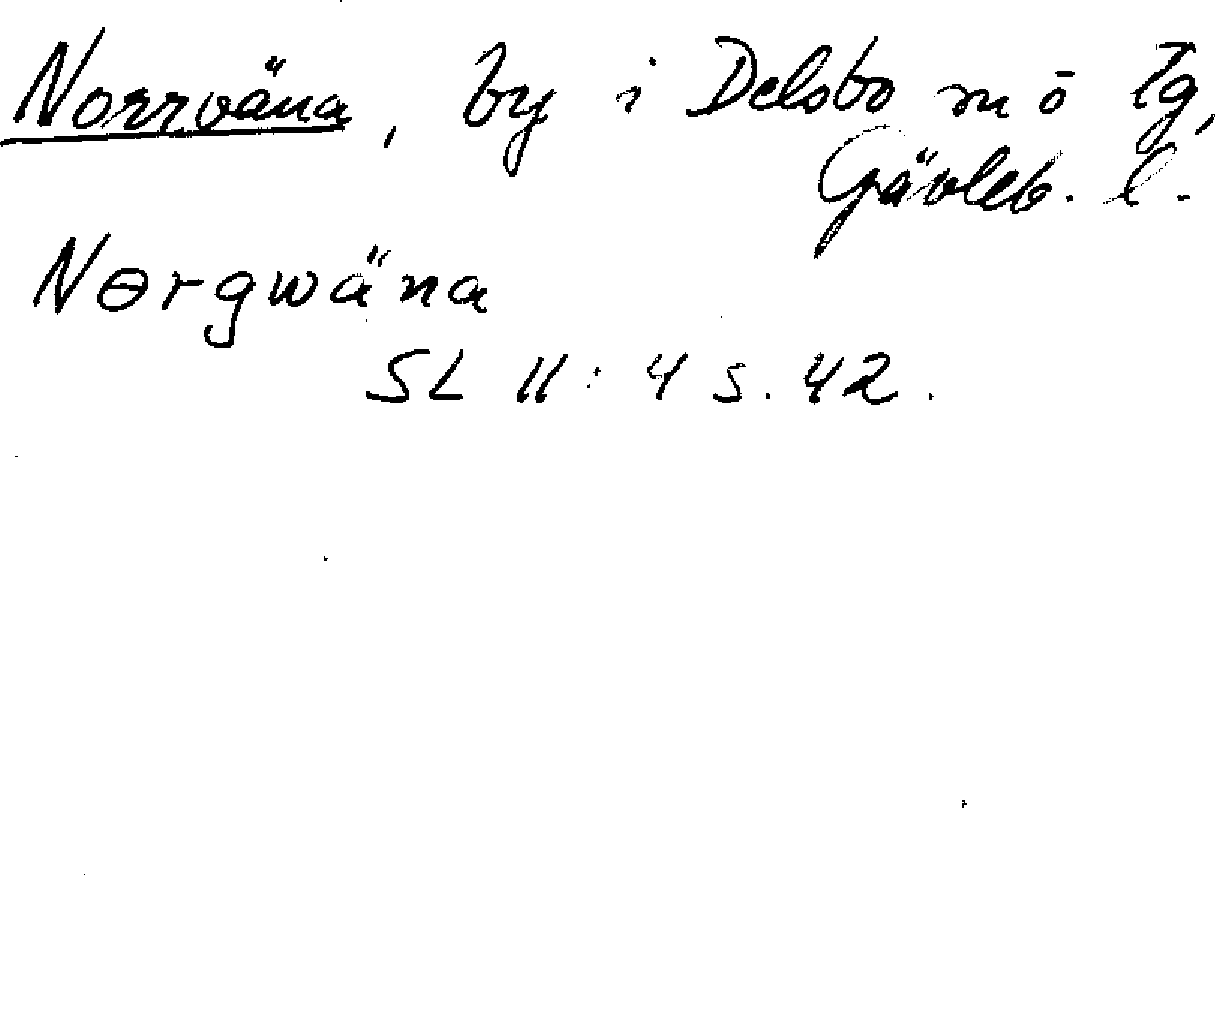 Norrväna, by i Delsbo m ō tg,
Gävleb. l.
Nørgwäna
SL II: 4 s. 42.